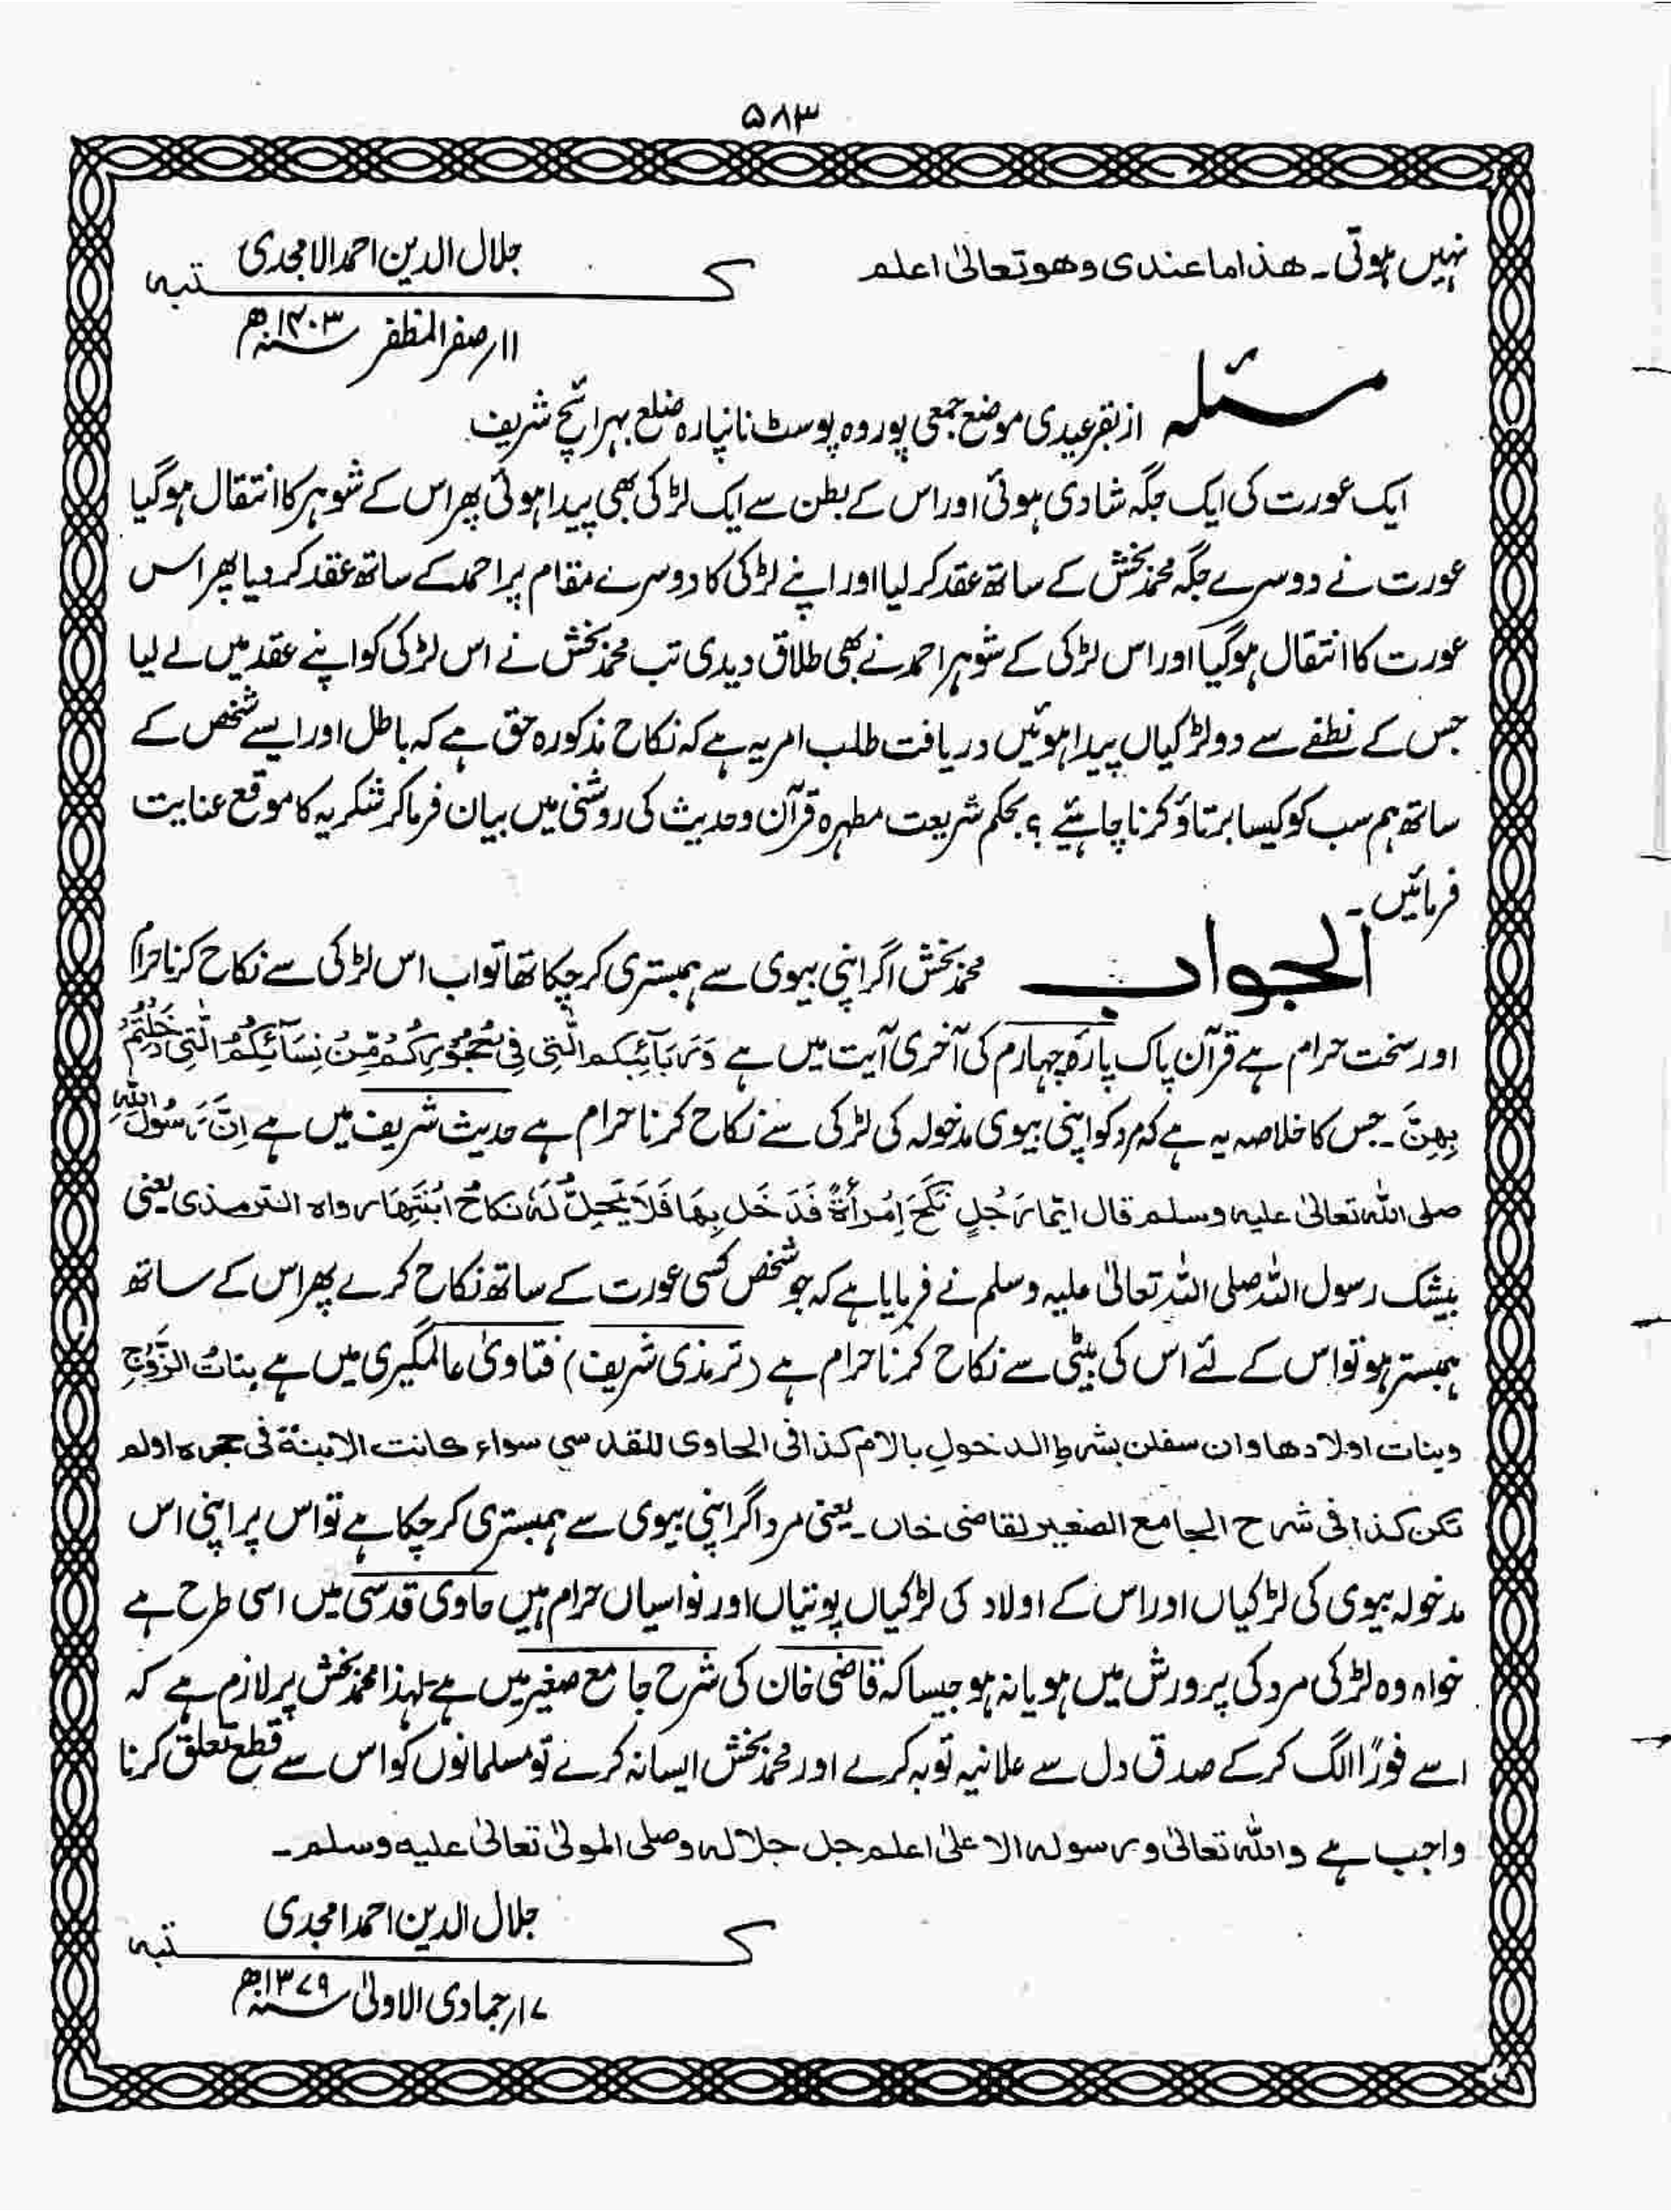 ۵۸۳
نہیں ہوتی۔ ھذا ما عندی وھو تعالیٰ اعلم
جلال الدین احمد الامجدی
کتبہ
۱۱؍صفر المظفر ۱۴۰۳ھ
مسئلہ از بقرعیدی موضع جمعی پوروہ پوسٹ نانپارہ ضلع بہرائچ شریف
ایک عورت کی ایک جگہ شادی ہوئی اور اس کے بطن سے ایک لڑکی بھی پیدا ہوئی پھر اس کے شوہر کا انتقال ہوگیا
عورت نے دوسرے جگہ محمد بخش کے ساتھ عقد کرلیا اور اپنے لڑکی کا دوسرے مقام پر احمد کے ساتھ عقد کردیا پھر اس
عورت کا انتقال ہوگیا اور اس لڑکی کے شوہر احمد نے بھی طلاق دیدی تب محمد بخش نے اس لڑکی کو اپنے عقد میں لے لیا
جس کے نطفے سے دو لڑکیاں پیدا ہوئیں دریافت طلب امر یہ ہے کہ نکاح مذکورہ حق ہے کہ باطل اور ایسے شخص کے
ساتھ ہم سب کو کیسا برتاؤ کرنا چاہئیے ؟ بحکم شریعت مطہرہ قرآن وحدیث کی روشنی میں بیان فرماکر شکریہ کا موقع عنایت
فرمائیں۔
الجواب محمد بخش اگر اپنی بیوی سے ہمبستری کرچکا تھا تو اب اس لڑکی سے نکاح کرنا حرام
اور سخت حرام ہے قرآن پاک پارۂ چہارم کی آخری آیت میں ہے وَرَبَآئِبُکُم الّٰتِی فِی حُجُوْرِکُمْ مِّنْ نِسَآئِکُمُ الّٰتِی دَخَلْتُمْ
بِھِنَّ۔ جس کا خلاصہ یہ ہے کہ مرد کو اپنی بیوی مدخولہ کی لڑکی سے نکاح کرنا حرام ہے حدیث شریف میں ہے اِنَّ رَسُوْلَ اللّٰہِ
صلی اللہ تعالیٰ علیہ وسلم قال ایّما رَجُلٍ نَکَحَ اِمْرأَۃً فَدَخَل بِھَا فَلَا یَحِلُّ لَہٗ نکاحُ ابْنَتِھَا رواہ الترمذی یعنی
بیشک رسول اللہ صلی اللہ تعالیٰ علیہ وسلم نے فرمایا ہے کہ جو شخص کسی عورت کے ساتھ نکاح کرے پھر اس کے ساتھ
ہمبستر ہو تو اس کے لئے اس کی بیٹی سے نکاح کرنا حرام ہے (ترمذی شریف) فتاویٰ عالمگیری میں ہے بناتُ الزَّوْجِ
وبنات اولادھا وان سفلن بشرطِ الدخولِ بالام کذا فی الحاوی للقدسی سواء کانت الابنۃ فی حجرہ اولم
تکن کذا فی شرح الجامع الصغیر لقاضی خاں۔ یعنی مرد اگر اپنی بیوی سے ہمبستری کرچکا ہے تو اس پر اپنی اس
مدخولہ بیوی کی لڑکیاں اور اس کے اولاد کی لڑکیاں پوتیاں اور نواسیاں حرام ہیں حاوی قدسی میں اسی طرح ہے
خواہ وہ لڑکی مرد کی پرورش میں ہو یا نہ ہو جیسا کہ قاضی خان کی شرح جامع صغیر میں ہے لہٰذا محمد بخش پر لازم ہے کہ
اسے فوراً الگ کرکے صدق دل سے علانیہ توبہ کرے اور محمد بخش ایسا نہ کرے تو مسلمانوں کو اس سے قطع تعلق کرنا
واجب ہے واللہ تعالیٰ ورسولہ الاعلیٰ اعلم جل جلالہ وصلی المولیٰ تعالیٰ علیہ وسلم۔
جلال الدین احمد امجدی
کتبہ
۱۷؍جمادی الاولیٰ ۱۳۷۹ھ